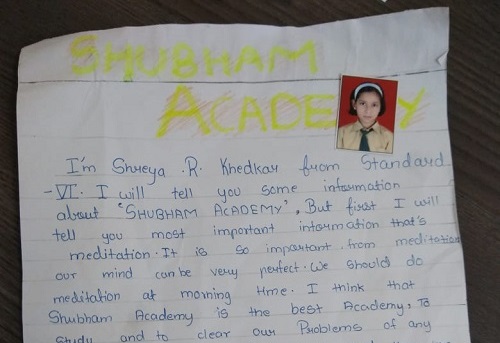 SHUBHAM
ACADEMY
I'm Shreya .R. Khedkar from Standard
-VI. I will tell you some information
about "SHUBHAM ACADEMY", But first I will
tell you most important information that's
meditation. It is so important from meditation
our mind can be very perfect. We should do
meditation at morning time. I think that
Shubham Academy is the best Academy, To
Study and to clear our Problems of any